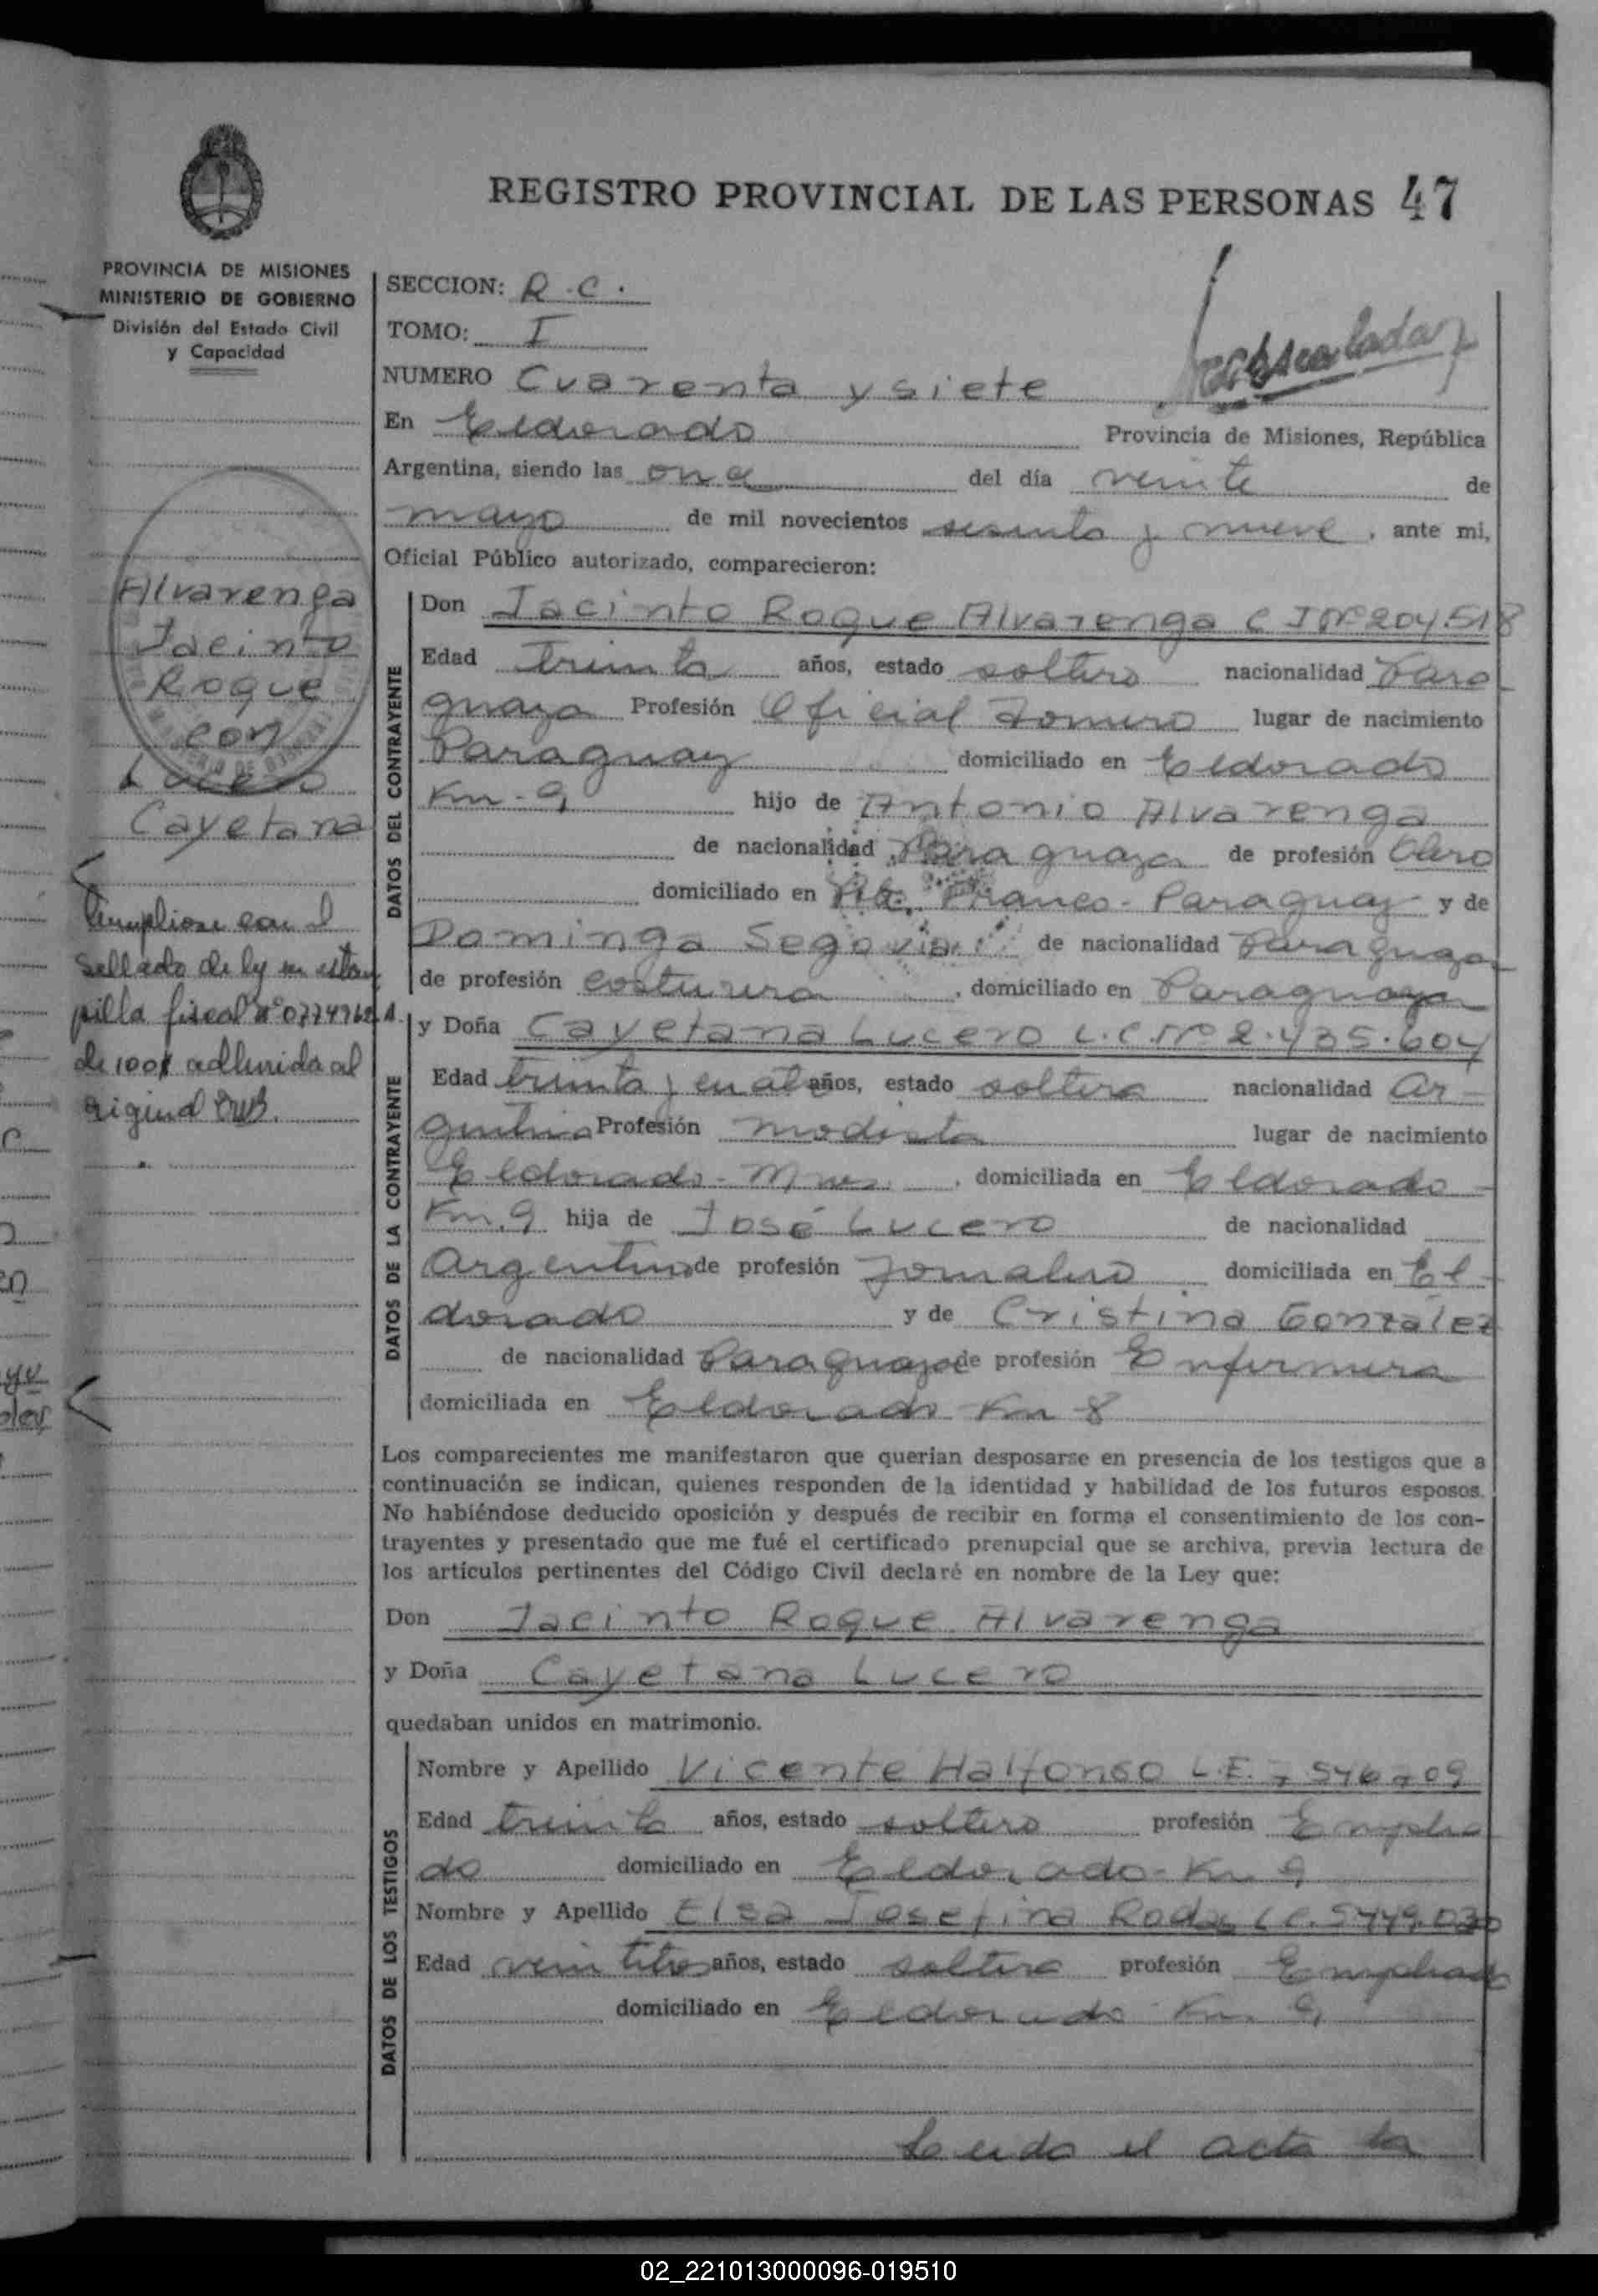 REGISTRO PROVINCIAL DE LAS PERSONAS 47
PROVINCIA DE MISIONES
MINISTERIO DE GOBIERNO
División del Estado Civil
y Capacidad
SECCION: R.C.
TOMO: I
NUMERO Cuarenta y siete
En Eldorado Provincia de Misiones, República
Argentina, siendo las once del día veinte de
mayo de mil novecientos sesenta y nueve, ante mi,
Oficial Público autorizado, comparecieron:
Alvarenga
Jacinto
Roque
con
Lucero
Cayetana
Cumpliose con el
sellado de ley en estam
pilla fiscal Nº
de 100$ adherida al
original
DATOS DEL CONTRAYENTE
Don Jacinto Roque Alvarenga C I Nº 204.518
Edad treinta años, estado soltero nacionalidad Para
guaya Profesión Oficial Tornero lugar de nacimiento
Paraguay domiciliado en Eldorado
Km-9 hijo de Antonio Alvarenga
de nacionalidad Paraguaya de profesión Olero
domiciliado en Pte. Franco- Paraguay y de
Dominga Segovia de nacionalidad Paraguaya
de profesión costurera, domiciliado en Paraguaya
DATOS DE LA CONTRAYENTE
y Doña Cayetana Lucero L.C. Nº 2.435.604
Edad treinta y cuatro años, estado soltera nacionalidad Ar-
gentina Profesión modista lugar de nacimiento
Eldorado- Mnes. , domiciliada en Eldorado-
Km. 9 hija de José Lucero de nacionalidad
Argentino de profesión Jornalero domiciliada en El-
dorado y de Cristina González
de nacionalidad Paraguaya de profesión Enfermera
domiciliada en Eldorado Km 8
Los comparecientes me manifestaron que querian desposarse en presencia de los testigos que a
continuación se indican, quienes responden de la identidad y habilidad de los futuros esposos.
No habiéndose deducido oposición y después de recibir en forma el consentimiento de los con-
trayentes y presentado que me fué el certificado prenupcial que se archiva, previa lectura de
los artículos pertinentes del Código Civil declaré en nombre de la Ley que:
Don Jacinto Roque Alvarenga
y Doña Cayetana Lucero
quedaban unidos en matrimonio.
DATOS DE LOS TESTIGOS
Nombre y Apellido Vicente Halfonso L.E. 7546709
Edad treinta años, estado soltero profesión Emplea
do domiciliado en Eldorado- Km 9
Nombre y Apellido Elsa Josefina Rodas L.C. 5449.030
Edad veintitres años, estado soltera profesión Empleada
domiciliado en Eldorado Km. 9
Leida el acta la
02_221013000096-019510